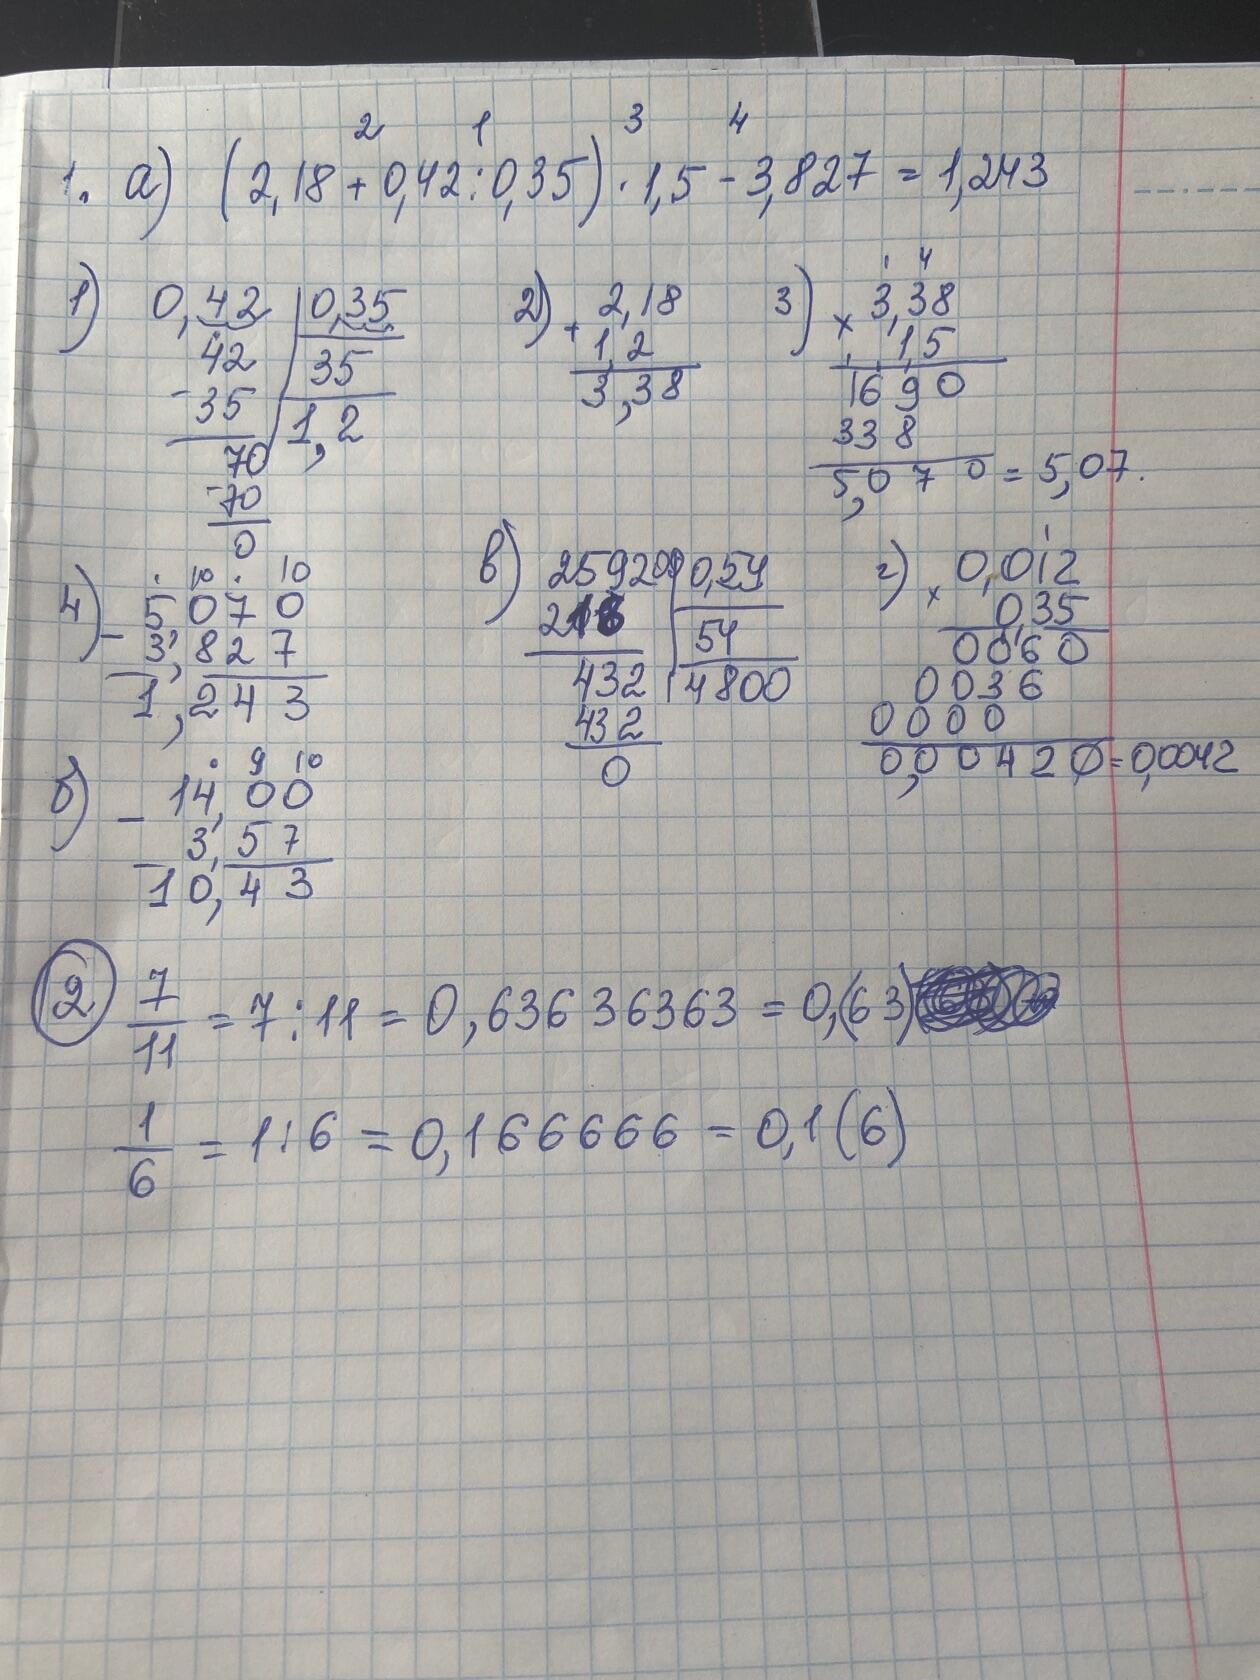 2 1 3 4
1. а) (2,18 + 0,42 : 0,35) · 1,5 - 3,827 = 1,243
1) 0,42 0,35
42 35
-35 1,2
70
-70
0
2) 2,18
+ 1,2
3,38
3) 1 4
× 3,38
1,5
1690
338
5,070 = 5,07.
4) . 10 . 10
- 5070
3,827
1,243
в) 259200 0,54
216 54
432 4800
432
0
г) 1
× 0,012
0,35
0060
0036
0000
0,00420 = 0,0042
б) . 9 10
- 14,00
3,57
10,43
2 7/11 = 7 : 11 = 0,636 36363 = 0,(63)
1/6 = 1 : 6 = 0,166666 = 0,1(6)